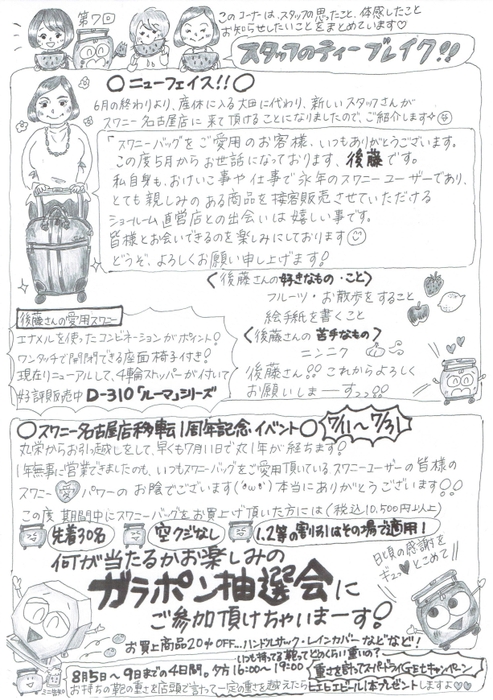 第7回
このコーナーは、スタッフの思ったこと、体感したこと
お知らせしたいことをまとめています♡
スタッフのティーブレイク!!
○ニューフェイス!!○
6月の終わりより、産休に入る大田に代わり、新しいスタッフさんが
スワニー名古屋店に来て頂けることになりましたので、ご紹介します
「スワニーバッグをご愛用のお客様、いつもありがとうございます。
この度5月からお世話になっております、後藤です。
私自身も、おけいこ事や仕事で永年のスワニーユーザーであり、
とても親しみのある商品を接客販売させていただける
ショールーム直営店との出会いは嬉しい事です。
皆様とお会いできるのを楽しみにしております
どうぞ、よろしくお願い申し上げます!
〈後藤さんの好きなもの・こと〉
フルーツ・お散歩をすること
絵手紙を書くこと
〈後藤さんの苦手なもの〉
ニンニク
後藤さん!! これからよろしく
お願いしまーすっっ!!
後藤さんの愛用スワニー
エナメルを使ったコンビネーションがポイント!
ワンタッチで開閉できる座面椅子付き!
現在リニューアルして、4輪ストッパーが付いて
好評販売中 D-310「ルーマ」シリーズ
○スワニー名古屋店移転1周年記念イベント○
7/11〜7/31
丸栄からお引越しをして、早くも7月11日で丸1年が経ちます!
1年無事に営業できましたのも、いつもスワニーバッグをご愛用頂いているスワニーユーザーの皆様の
スワニー♡パワーのお陰でございます(´ω`)本当にありがとうございます!!
この度期間中にスワニーバッグをお買上げ頂いた方には(税込10,500円以上)
先着30名
空クジなし
1.2等の割引はその場で適用!
何が当たるかお楽しみの
ガラポン抽選会に
ご参加頂けちゃいまーす!
日頃の感謝を
ギュッ♡とこめて//
お買上商品20%OFF…ハンドルホック・レインカバーなどなど!
8月5日〜9日までの4日間。夕方16:00〜19:00
いつも持ってる鞄ってどのくらい重いの?
重さを計ってスーパードライGETキャンペーン
お持ちの鞄の重さを店頭で計って一定の重さを越えたらヒエヒエビール1本プレゼントしますよ